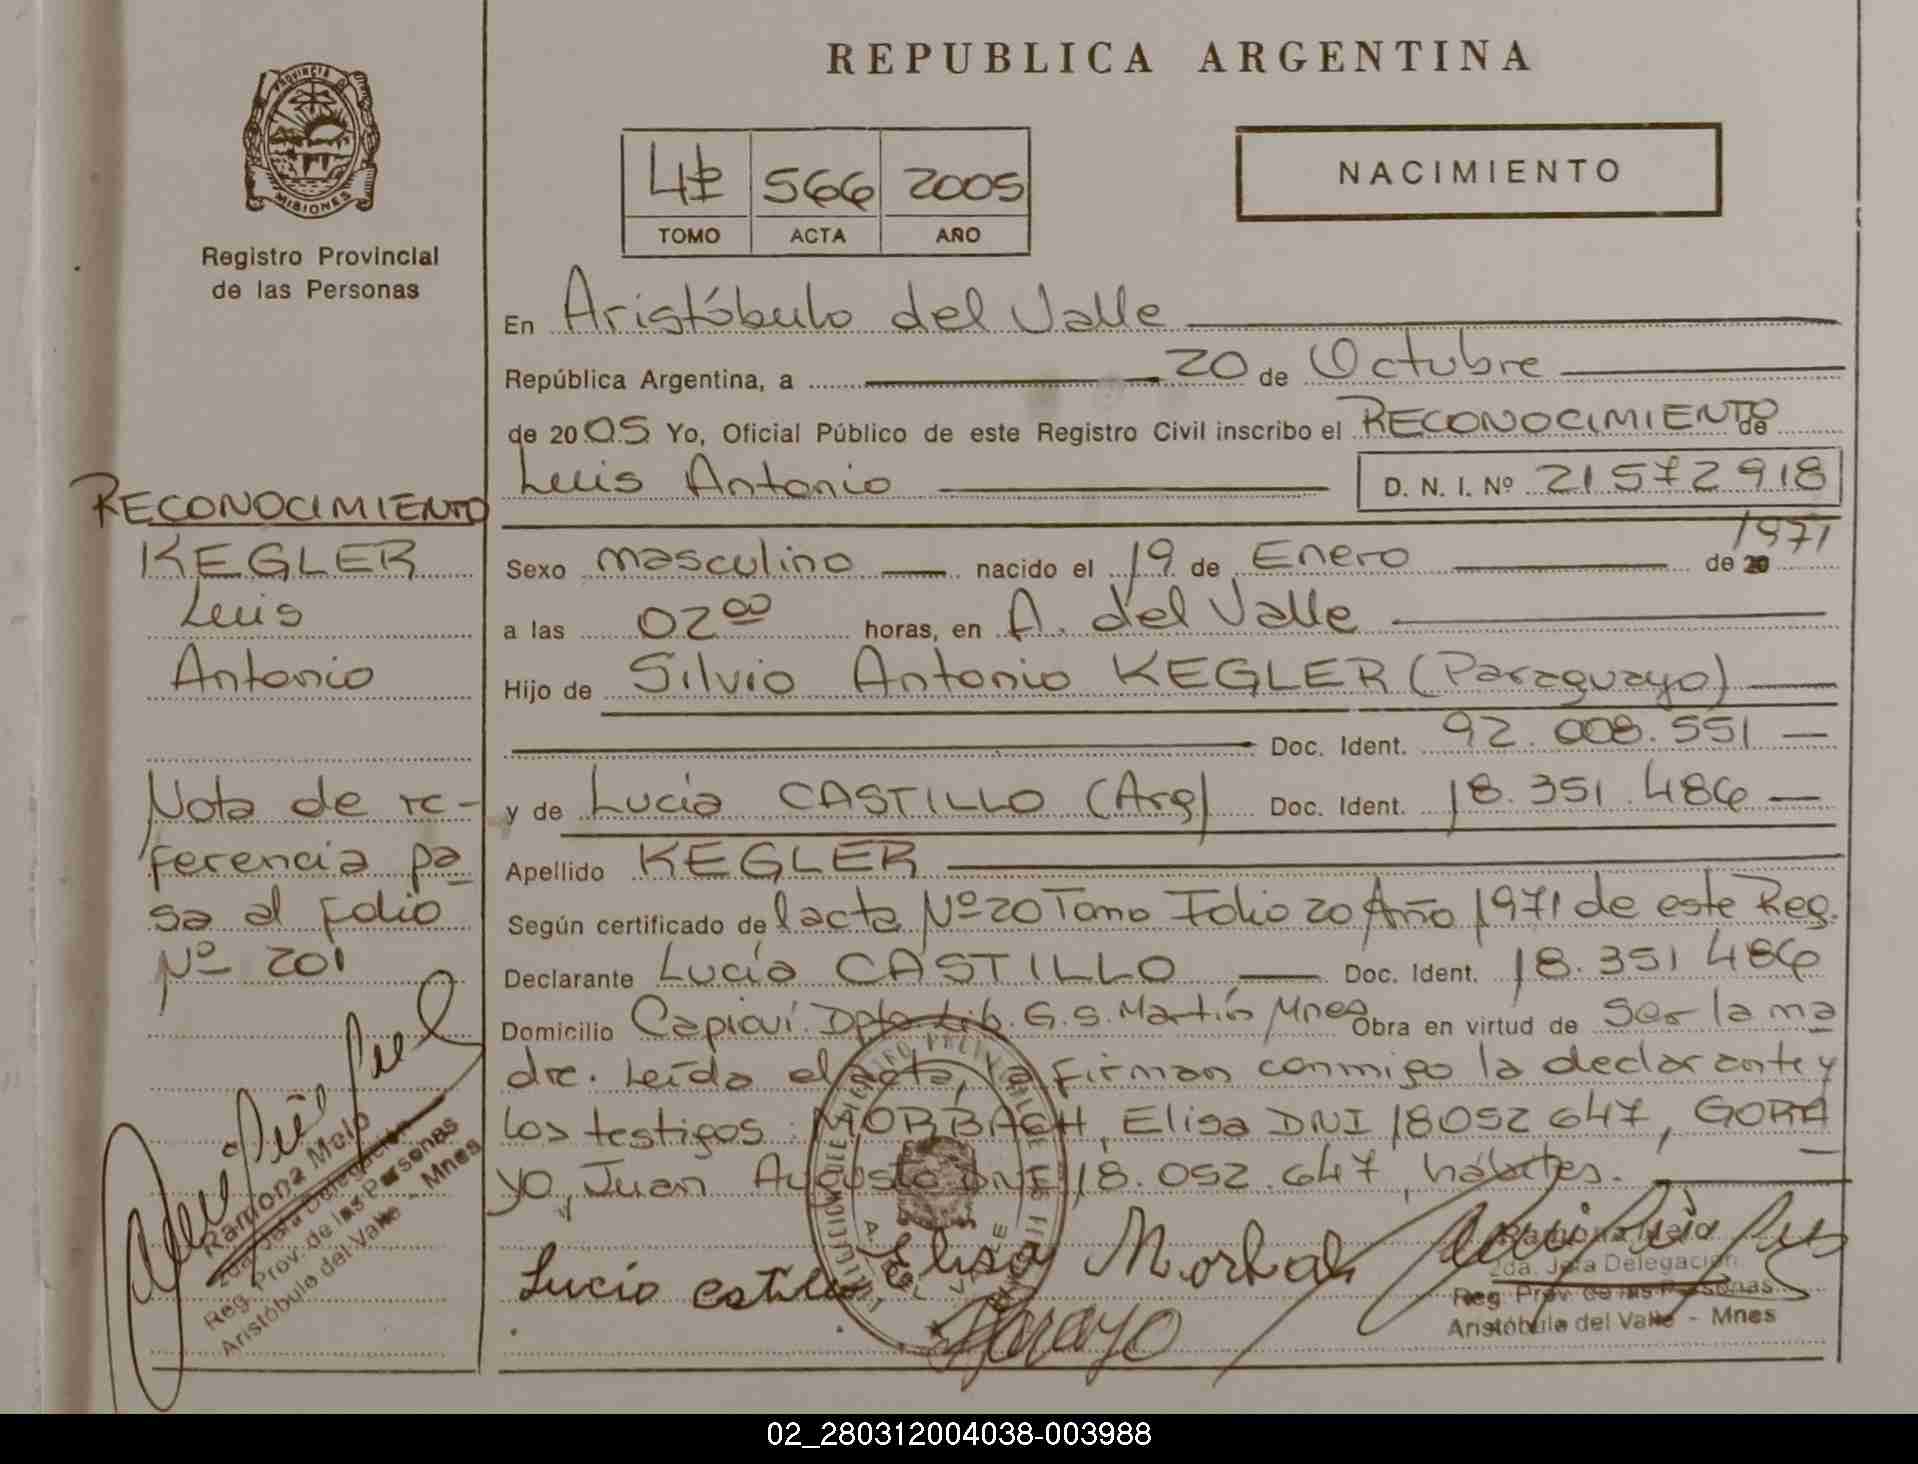 PROVINCIA DE
MISIONES
Registro Provincial
de las Personas
REPUBLICA ARGENTINA
566 2005
TOMO ACTA AÑO
NACIMIENTO
En Aristóbulo del Valle
República Argentina, a 20 de Octubre
de 2005 Yo, Oficial Público de este Registro Civil inscribo el RECONOCIMIENTO de
Luis Antonio D. N. I. Nº 21572918
Sexo masculino nacido el 19 de Enero de 20 1971
a las 02 00 horas, en A. del Valle
Hijo de Silvio Antonio KEGLER (Paraguayo)
Doc. Ident. 92.008.551
y de Lucía CASTILLO (Arg) Doc. Ident. 18.351.486
Apellido KEGLER
Según certificado de lacta Nº 20 Tomo I Folio 20 Año 1971 de este Reg.
Declarante Lucía CASTILLO Doc. Ident. 18.351 486
Domicilio Capioví. Dpto Lib. G. S. Martín Mnes Obra en virtud de ser la ma
dre. Leída el acta, la firman conmigo la declarante y
los testigos: MORBACH, Elisa DNI 18052 647, GORA
yo, Juan Augusto DNI 18.052.647, hábiles.
Lucio castilo Elisa Morbach
Ramona Melo
2da. Jefa Delegación
Reg. Prov. de las Personas
Aristóbulo del Valle - Mnes
RECONOCIMIENTO
KEGLER
Luis
Antonio
Nota de re-
ferencia pa
sa al folio
Nº 201
Ramona Melo
2da. Jefa Delegación
Reg. Prov. de las Personas
Aristóbulo del Valle - Mnes
02_280312004038-003988